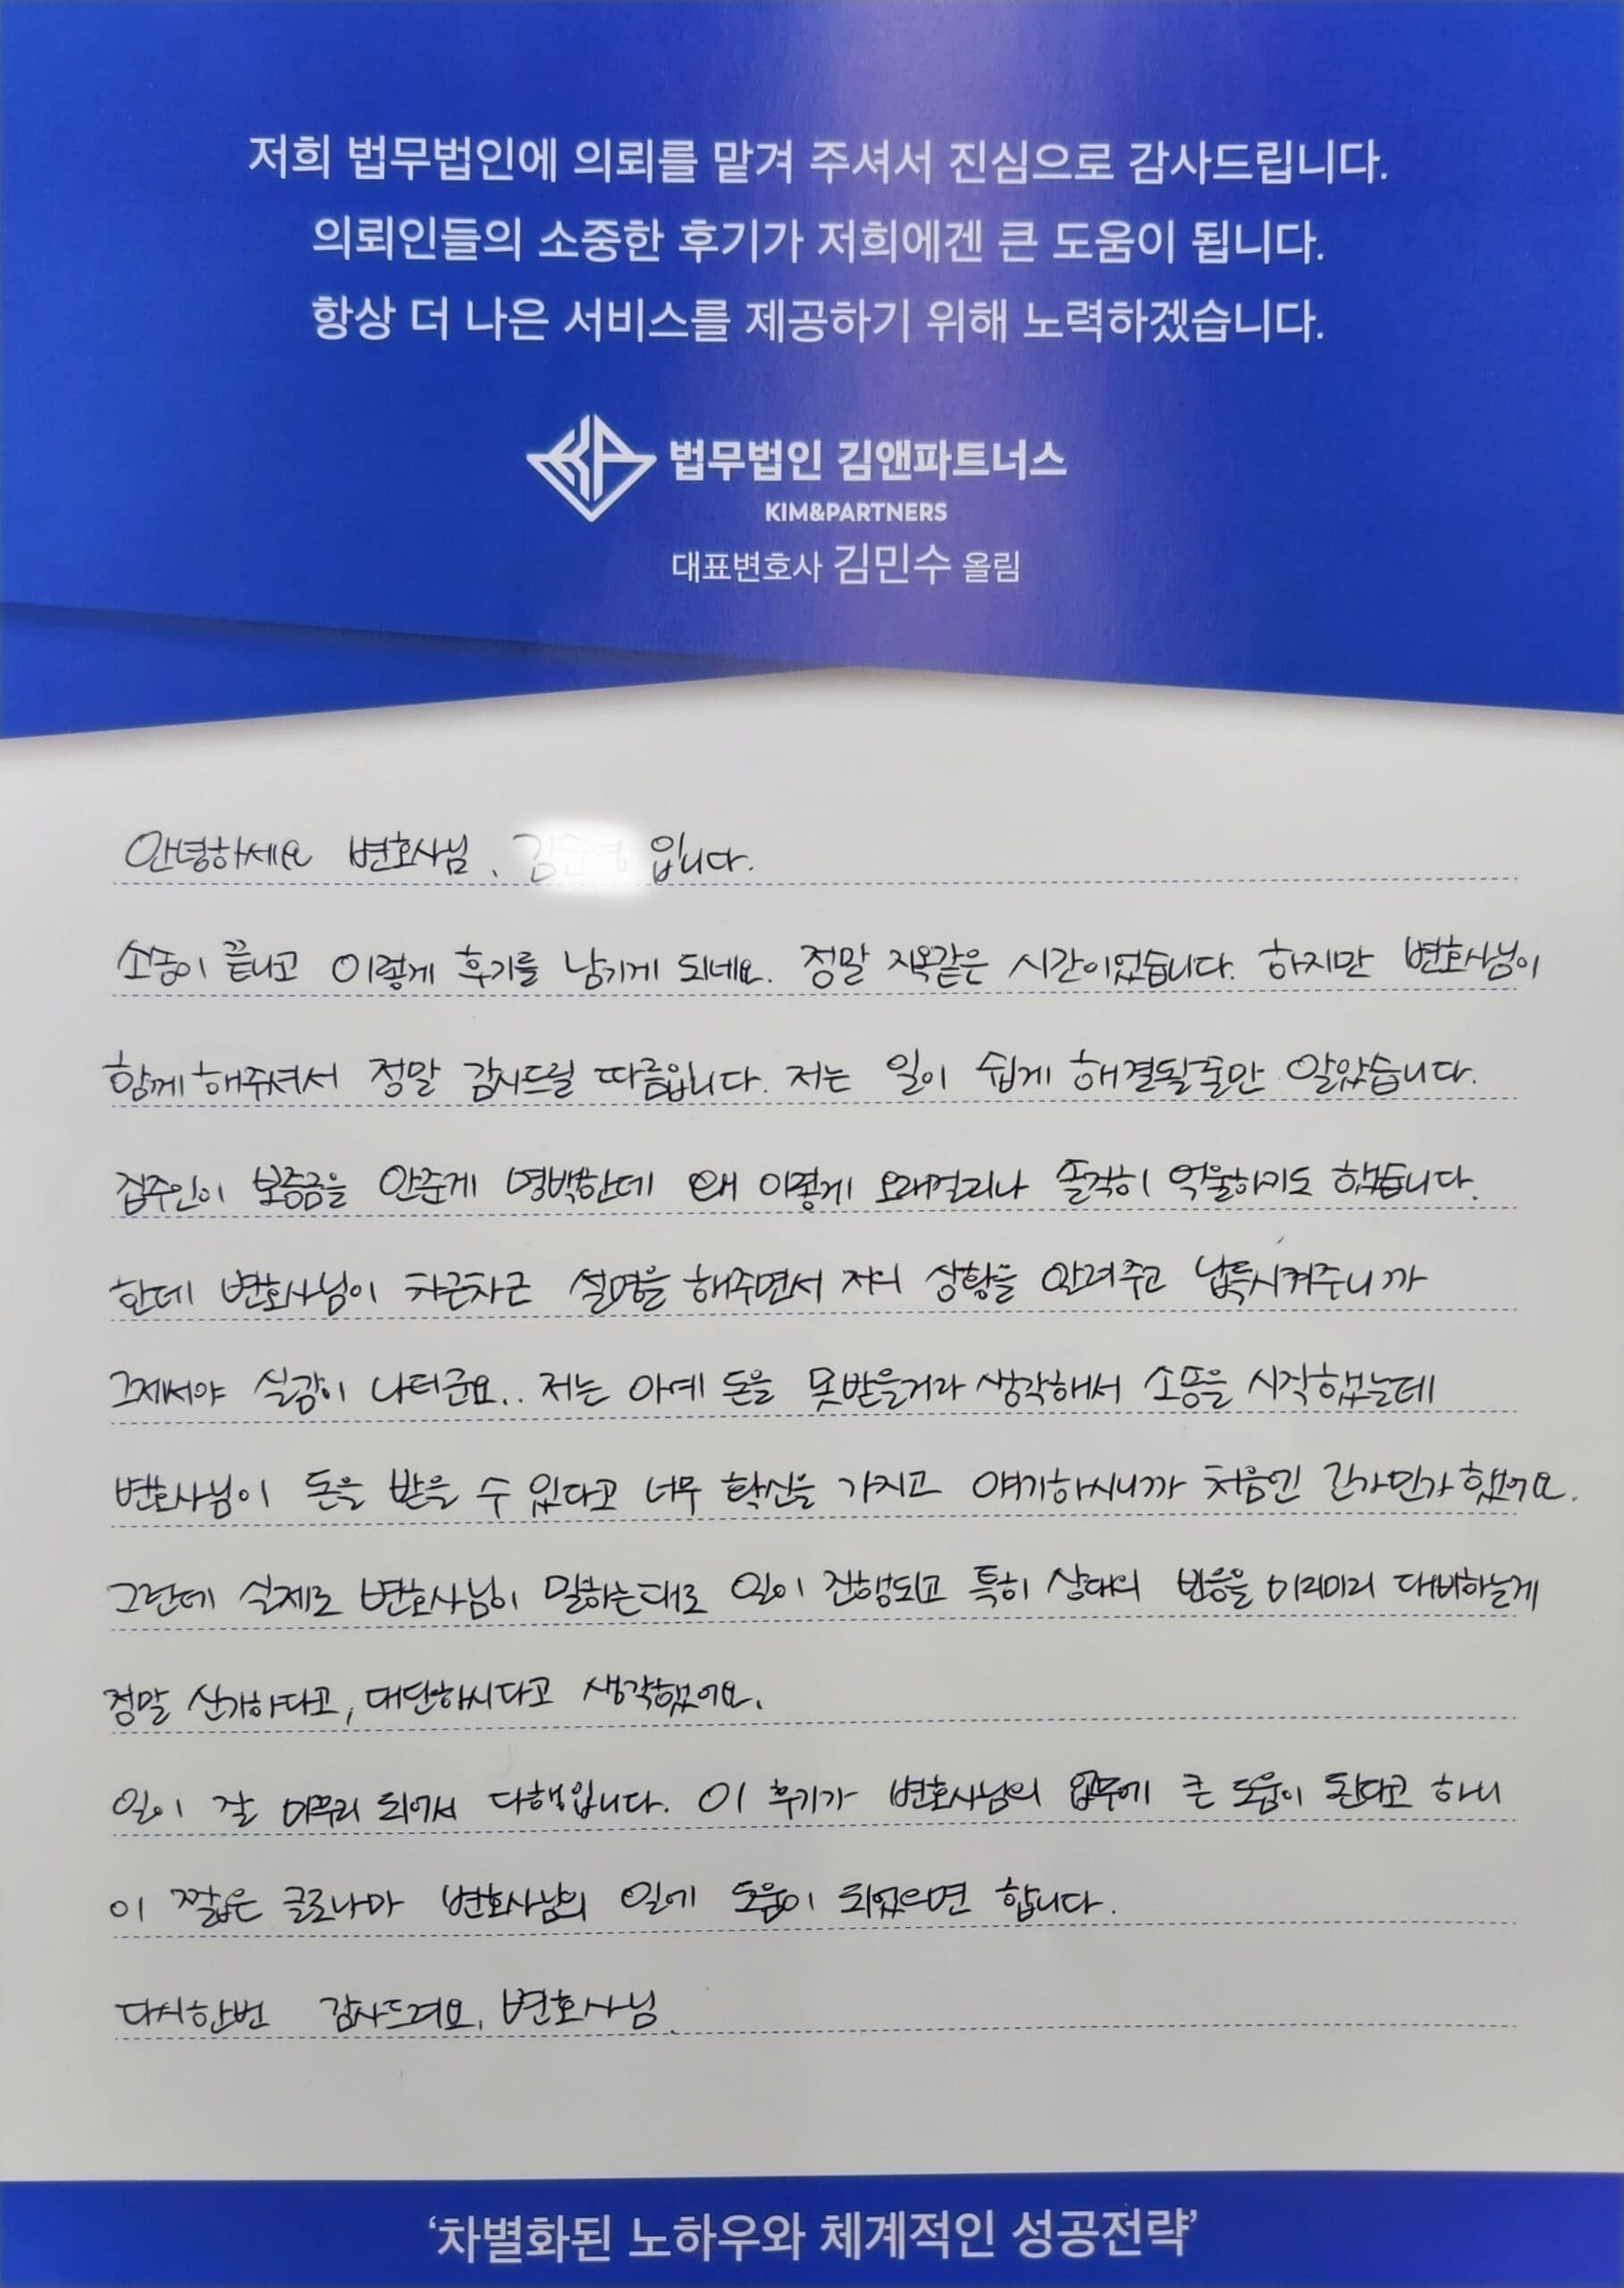 저희 법무법인에 의뢰를 맡겨 주셔서 진심으로 감사드립니다.
의뢰인들의 소중한 후기가 저희에겐 큰 도움이 됩니다.
항상 더 나은 서비스를 제공하기 위해 노력하겠습니다.
법무법인 김앤파트너스
KIM&PARTNERS
대표변호사 김민수 올림
안녕하세요 변호사님, 입니다.
소송이 끝나고 이렇게 후기를 남기게 되네요. 정말 지옥같은 시간이었습니다. 하지만 변호사님이
함께 해주셔서 정말 감사드릴 따름입니다. 저는 일이 쉽게 해결될줄만 알았습니다.
집주인이 보증금을 안준게 명백한데 왜 이렇게 오래걸리나 솔직히 억울하기도 했습니다.
한데 변호사님이 차근차근 설명을 해주면서 저의 상황을 알려주고 납득시켜주니까
그제서야 실감이 나더군요.. 저는 아예 돈을 못받을거라 생각해서 소송을 시작했는데
변호사님이 돈을 받을 수 있다고 너무 확신을 가지고 얘기하시니까 처음엔 긴가민가 했어요.
그런데 실제로 변호사님이 말하는대로 일이 진행되고 특히 상대의 반응을 미리미리 대비하는게
정말 신기하다고, 대단하시다고 생각했어요.
일이 잘 마무리 되어서 다행입니다. 이 후기가 변호사님의 업무에 큰 도움이 된다고 하니
이 짧은 글로나마 변호사님의 일에 도움이 되었으면 합니다.
다시한번 감사드려요, 변호사님.
‘차별화된 노하우와 체계적인 성공전략’